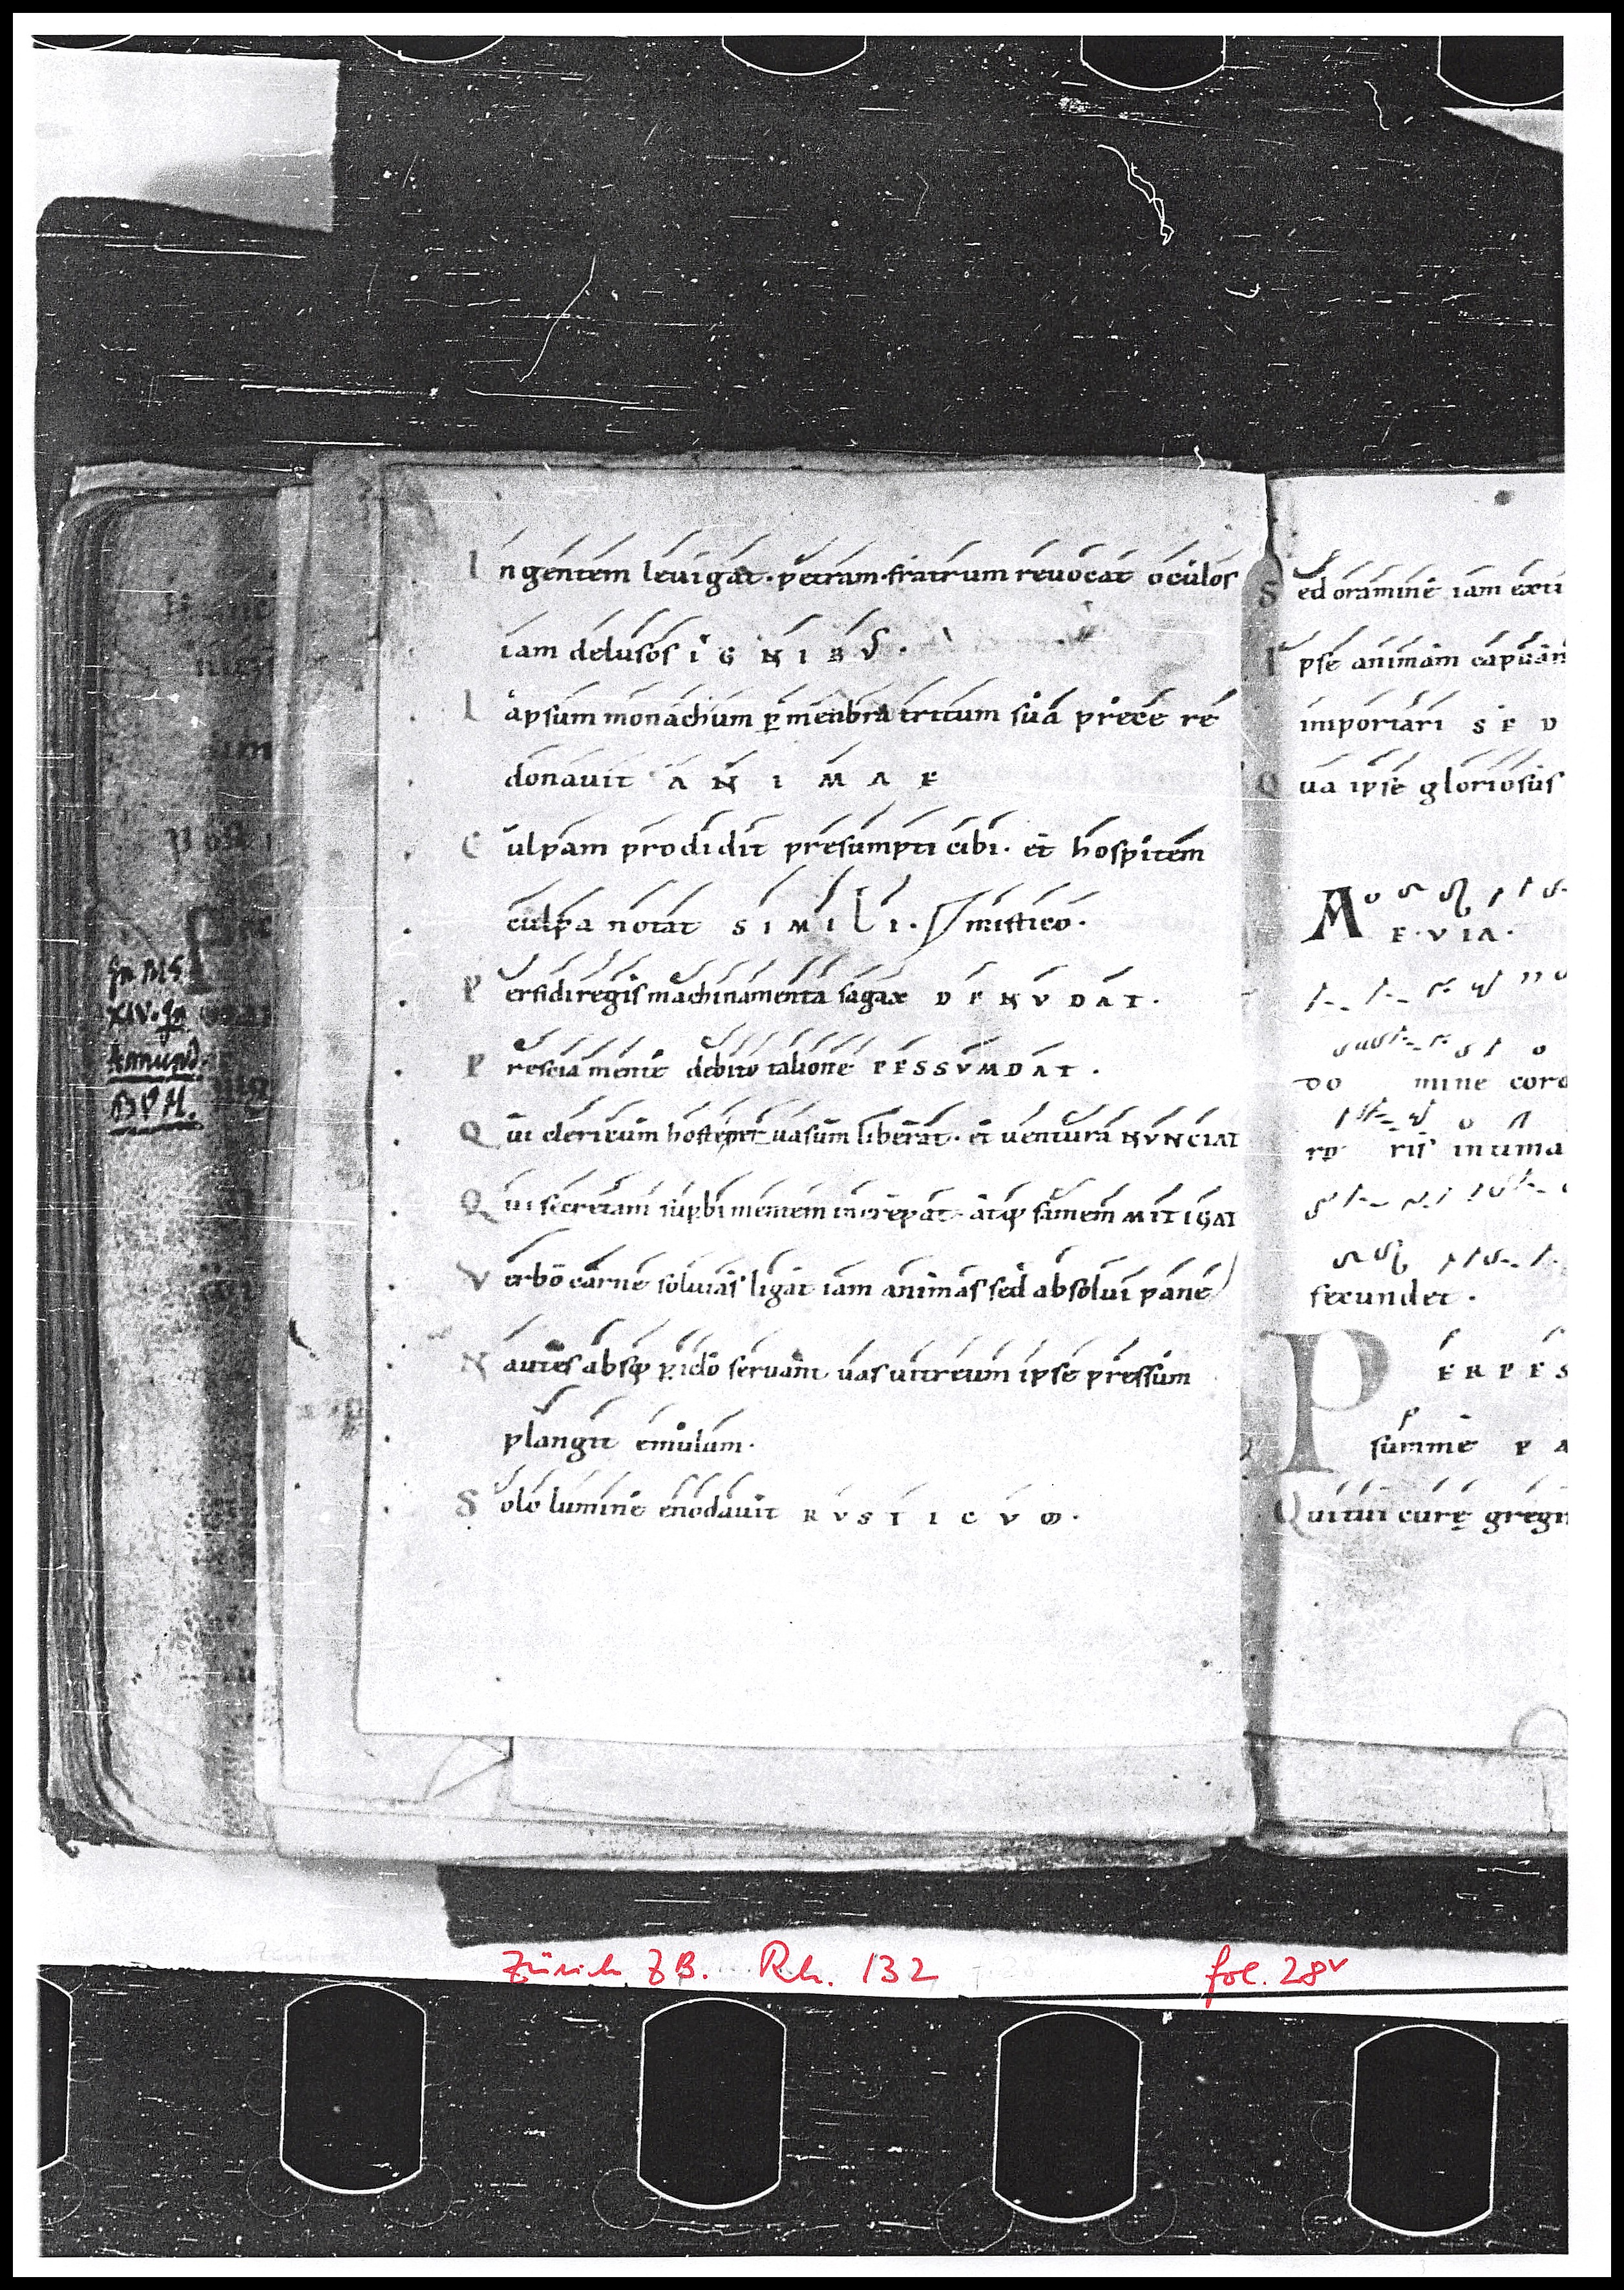 Ingentem leuigat. petram. fratrum reuocat oculos
iam delusos IGNIBVS.
Lapsum monachum p̲ menbra tritum sua prece re
donauit ANIMAE
Culpam prodidit presumpti cibi. et hospitem
culpa notat SIMILI. mistico.
Perfidi regis machinamenta sagax DENVDAT.
Prescia mente debito talione PESSVMDAT.
Qui clericum hoste uasum liberat. et uentura NVNCIAT
Qui secretam mentem increpat. atq; famem MITIGAT
Verbo carne solutas ligat iam animas sed absoluit pane
Nautes absq; seruant uas uitreum ipse pressum
plangit emulum.
Solo lumine enodauit RVSTICVM.
Sed oramine iam exti
Ipse animam capuan
importari SED
Qua ipse gloriosus
AEVIA.
do mine cord
rp ris intima
fecundet.
PERPES
summe PA
Qui tui curę gregi
BVH.
Zürich ZB. Rh. 132 fol. 28v